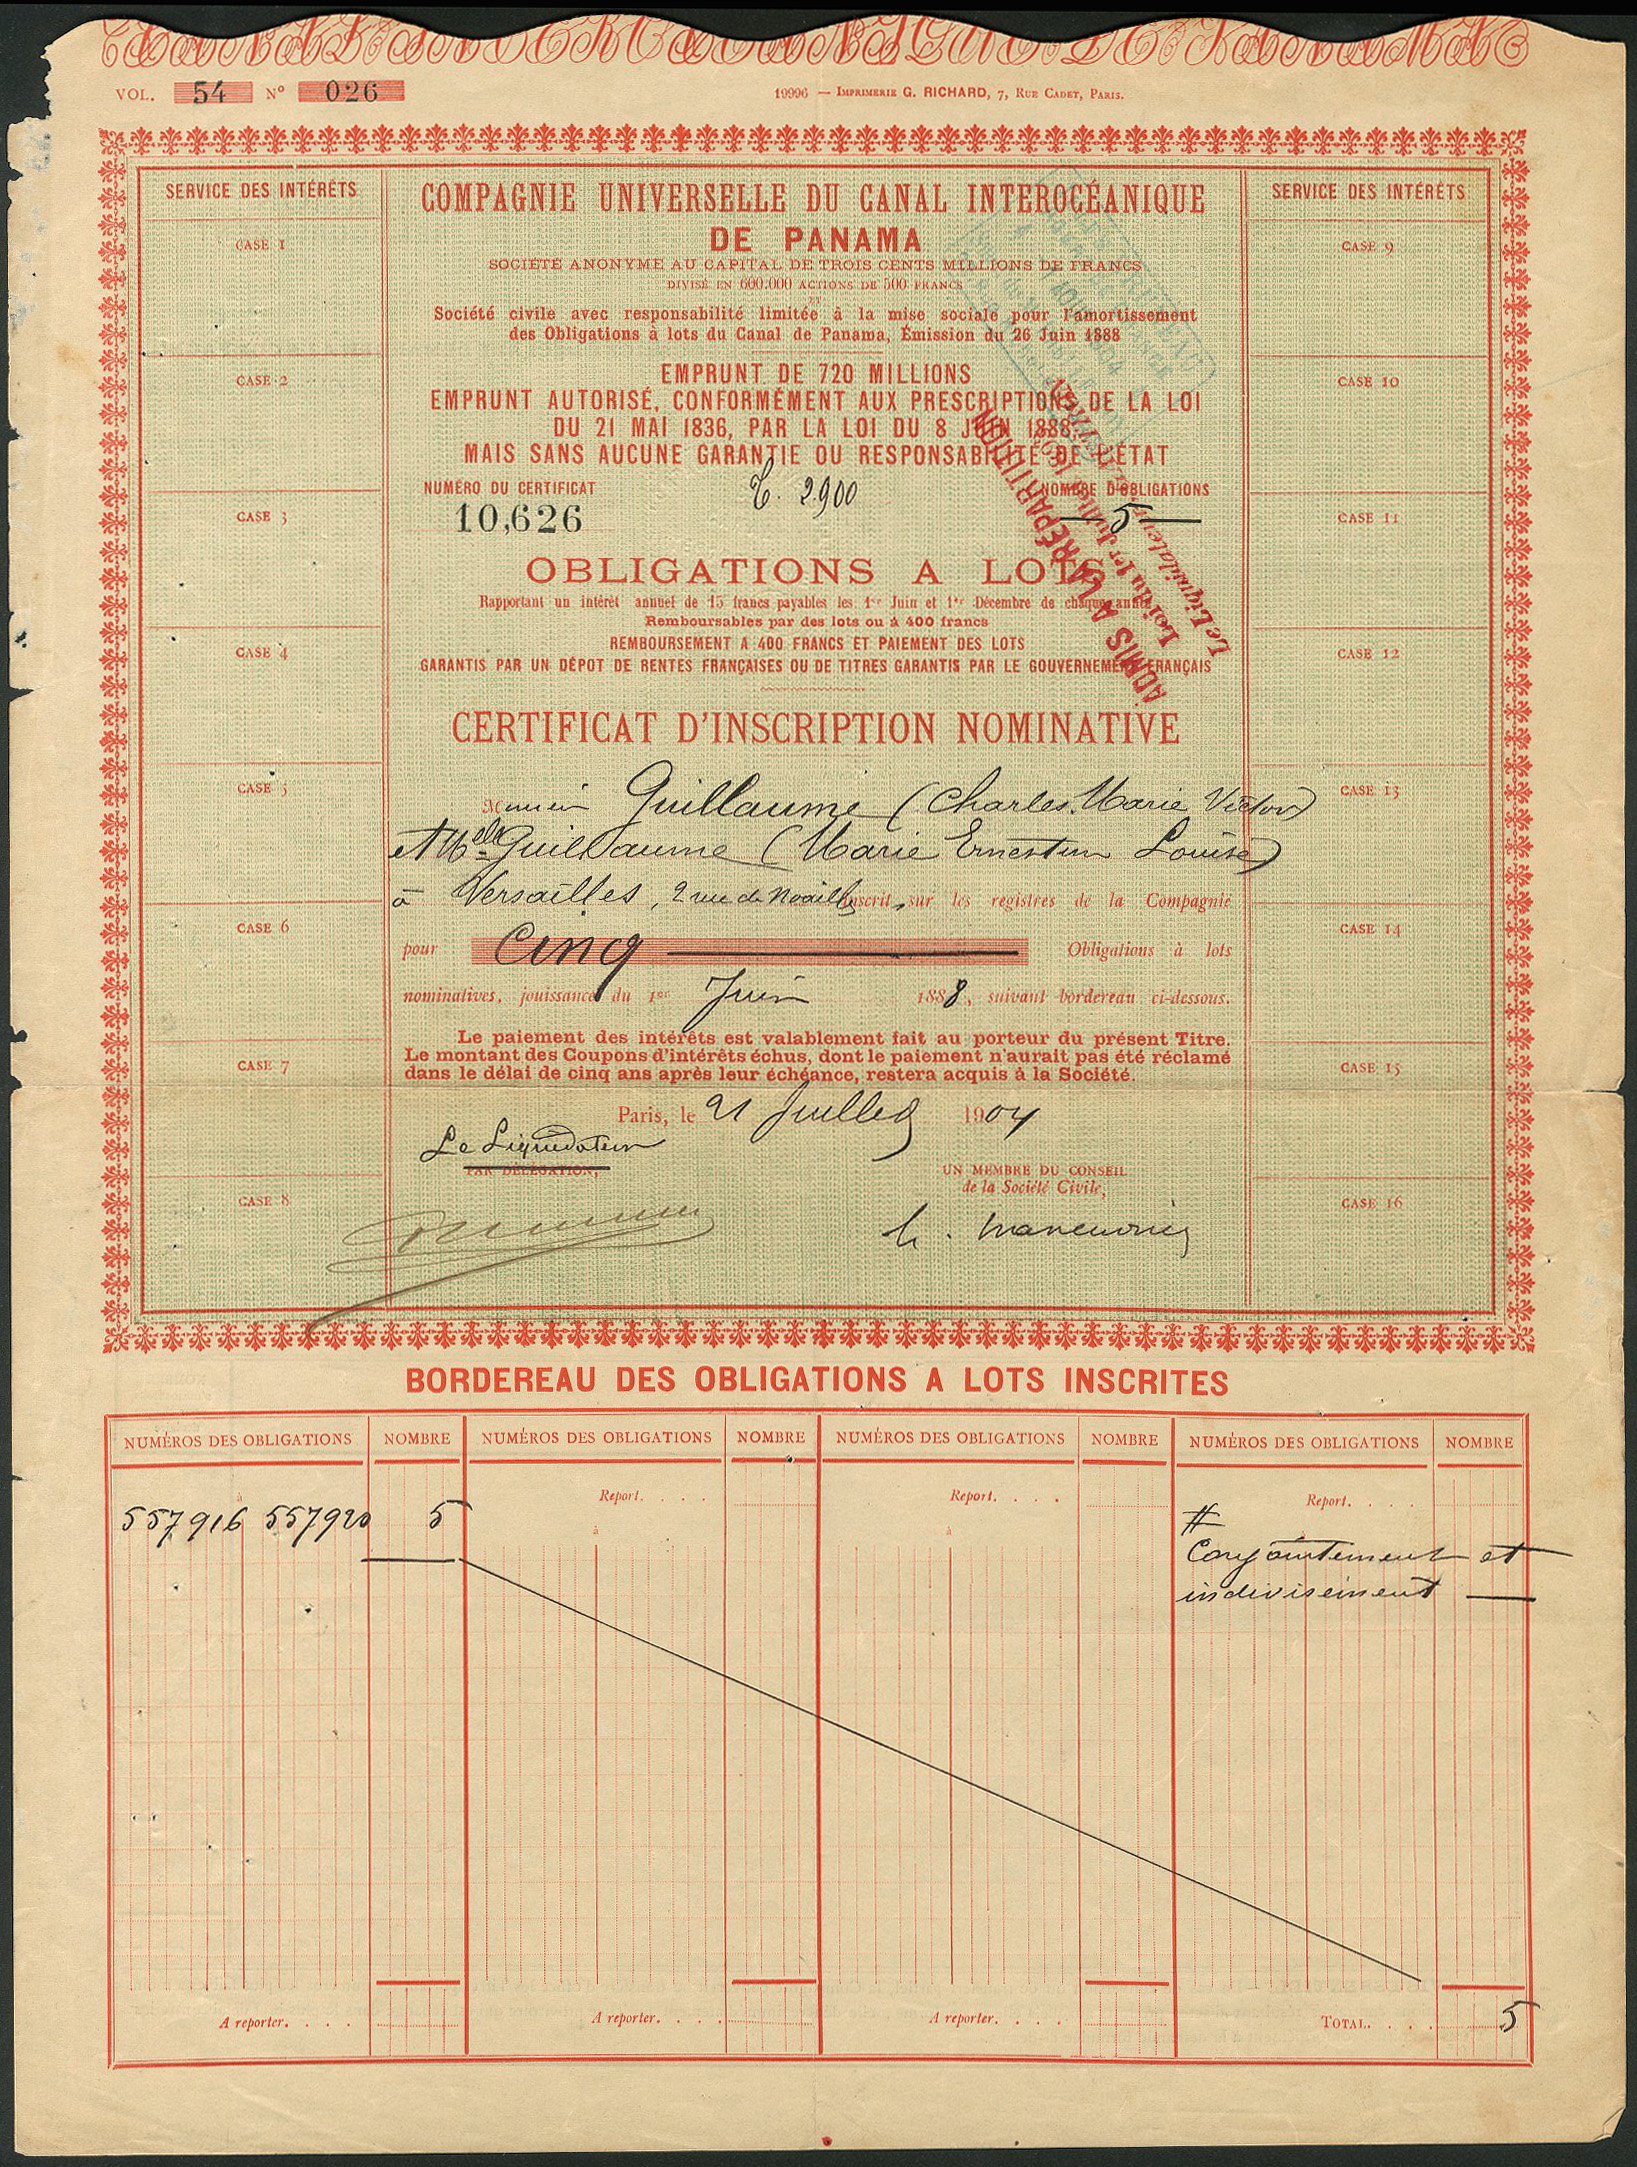 VOL. 54 N° 026
19996 — IMPRIMERIE G. RICHARD, 7, RUE CADET, PARIS.
SERVICE DES INTÉRÊTS
CASE 1
CASE 2
CASE 3
CASE 4
CASE 5
CASE 6
CASE 7
CASE 8
COMPAGNIE UNIVERSELLE DU CANAL INTEROCÉANIQUE
DE PANAMA
SOCIÉTÉ ANONYME AU CAPITAL DE TROIS CENTS MILLIONS DE FRANCS
DIVISÉ EN 600.000 ACTIONS DE 500 FRANCS
ET
Société civile avec responsabilité limitée à la mise sociale pour l'amortissement
des Obligations à lots du Canal de Panama, Émission du 26 Juin 1888
EMPRUNT DE 720 MILLIONS
EMPRUNT AUTORISÉ, CONFORMÉMENT AUX PRESCRIPTIONS DE LA LOI
DU 21 MAI 1836, PAR LA LOI DU 8 JUIN 1888,
MAIS SANS AUCUNE GARANTIE OU RESPONSABILITÉ DE L'ÉTAT
NUMÉRO DU CERTIFICAT
10,626
2900
NOMBRE D'OBLIGATIONS
5
ADMIS A LA RÉPARTITION
Loi du 1er Juillet 1893
Le Liquidateur
OBLIGATIONS A LOTS
Rapportant un intérêt annuel de 15 francs payables les 1er Juin et 1er Décembre de chaque année
Remboursables par des lots ou à 400 francs
REMBOURSEMENT A 400 FRANCS ET PAIEMENT DES LOTS
GARANTIS PAR UN DÉPOT DE RENTES FRANÇAISES OU DE TITRES GARANTIS PAR LE GOUVERNEMENT FRANÇAIS
CERTIFICAT D'INSCRIPTION NOMINATIVE
Monsieur Guillaume (Charles Marie Victor)
et Melle Guillaume (Marie Ernestine Louise)
à Versailles, 2 rue de Noailles inscrit sur les registres de la Compagnie
pour Cinq Obligations à lots
nominatives, jouissance du 1er Juin 1888, suivant bordereau ci-dessous.
Le paiement des intérêts est valablement fait au porteur du présent Titre.
Le montant des Coupons d'intérêts échus, dont le paiement n'aurait pas été réclamé
dans le délai de cinq ans après leur échéance, restera acquis à la Société.
Paris, le 21 Juillet 1904
Le Liquidateur
PAR DÉLÉGATION,
UN MEMBRE DU CONSEIL
de la Société Civile,
SERVICE DES INTÉRÊTS
CASE 9
CASE 10
CASE 11
CASE 12
CASE 13
CASE 14
CASE 15
CASE 16
BORDEREAU DES OBLIGATIONS A LOTS INSCRITES
NUMÉROS DES OBLIGATIONS NOMBRE NUMÉROS DES OBLIGATIONS NOMBRE NUMÉROS DES OBLIGATIONS NOMBRE NUMÉROS DES OBLIGATIONS NOMBRE
Report. . . . Report. . . . Report. . . .
à à à
557916 557920 5
#
Conjointement et
indivisément
A reporter. . . . A reporter. . . . A reporter. . . . TOTAL. . . . 5